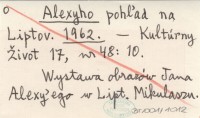 o
Alexyho pohľad na
Liptov. 1962. — Kultúrny
Život 17, nr 48: 10.
Wystawa obrazów Jana
Alexy'ego w Lipt. Mikulaszu.